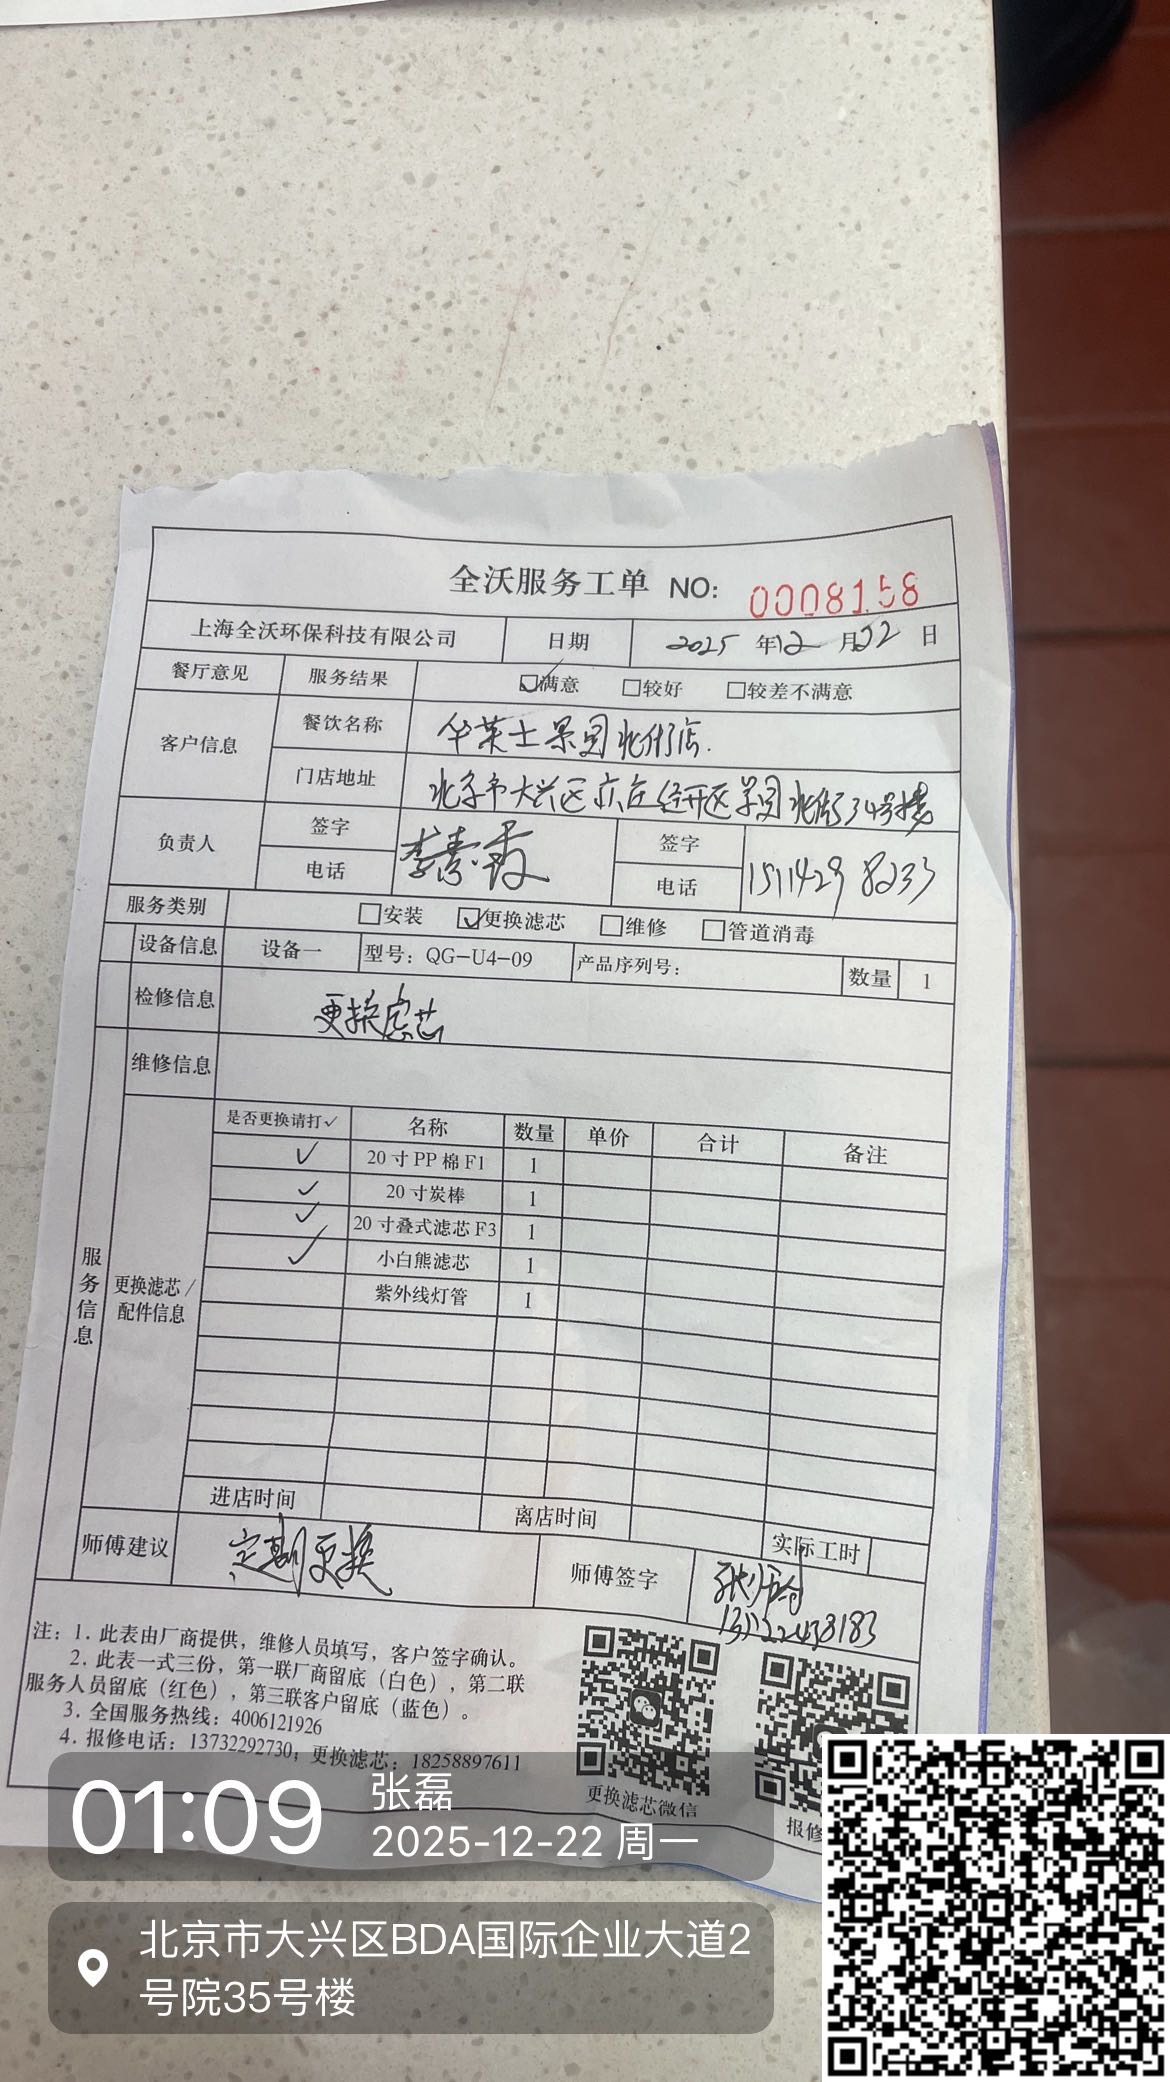 全沃服务工单 NO: 0008158
上海全沃环保科技有限公司 日期 2025 年 12 月 22 日
餐厅意见 服务结果 满意 较好 较差不满意
客户信息 餐饮名称 华莱士景园北街店.
门店地址 北京市大兴区亦庄经开区景园北街34号楼
负责人 签字 李素霞 签字
电话 电话 15114298233
服务类别 安装 更换滤芯 维修 管道消毒
设备信息 设备一 型号: QG-U4-09 产品序列号: 数量 1
检修信息 更换滤芯
维修信息
服务信息
更换滤芯/
配件信息
是否更换请打✓ 名称 数量 单价 合计 备注
✓ 20寸PP棉F1 1
✓ 20寸炭棒 1
✓ 20寸叠式滤芯F3 1
✓ 小白熊滤芯 1
紫外线灯管 1
进店时间 离店时间 实际工时
师傅建议 定期更换 师傅签字 张师付
注: 1. 此表由厂商提供，维修人员填写，客户签字确认。
2. 此表一式三份，第一联厂商留底（白色），第二联
服务人员留底（红色），第三联客户留底（蓝色）。
3. 全国服务热线: 4006121926
4. 报修电话: 13732292730; 更换滤芯: 18258897611
更换滤芯微信
报修
01:09
张磊
2025-12-22 周一
北京市大兴区BDA国际企业大道2
号院35号楼